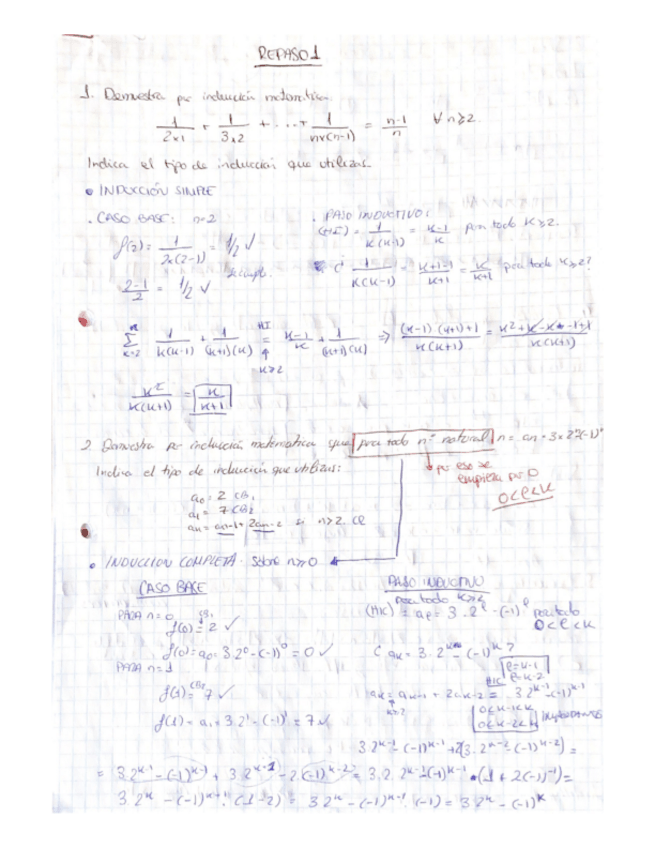 REPASO 1
1. Demuestra por inducción matemática.
1/(2x1) + 1/(3x2) + ... + 1/(nx(n-1)) = (n-1)/n ∀ n≥2.
Indica el tipo de inducción que utilizas.
• INDUCCIÓN SIMPLE
· CASO BASE: n=2
f(2) = 1/(2x(2-1)) = 1/2 ✓
(2-1)/2 = 1/2 ✓
· PASO INDUCTIVO:
(HI) = 1/(K(K-1)) = (K-1)/K para todo K≥2.
¿ 1/(K(K-1)) = (K+1-1)/(K+1) = K/(K+1) para todo K≥2?
∑ K=2 1/(K(K-1)) + 1/((K+1)(K)) = HI K≥2 (K-1)/K + 1/((K+1)(K)) ⇒ ((K-1)(K+1)+1)/(K(K+1)) = (K²+K-K-1+1)/(K(K+1))
K²/(K(K+1)) = K/(K+1)
2. Demuestra por inducción matemática que para todo nº natural n = an = 3x2^n-(-1)^n
Indica el tipo de inducción que utilizas:
por eso se
empieza por 0
0≤l<K
a0 = 2 CB1
a1 = 7 CB2
an = an-1 + 2an-2 si n≥2. CR
• INDUCCION COMPLETA: sobre n≥0
CASO BASE
PARA n=0
f(0) = CB1 2 ✓
f(0) = a0 = 3·2^0 - (-1)^0 = 0 ✓
PARA n=1
f(1) = CB2 7 ✓
f(1) = a1 = 3·2^1 - (-1)^1 = 7 ✓
PASO INDUCTIVO
para todo K≥2
(HIC) = al = 3·2^l - (-1)^l para todo
0≤l<K
¿ aK = 3·2^K - (-1)^K ?
l=K-1
l=K-2
aK = K≥2 aK-1 + 2aK-2 = HIC 3·2^K-1 - (-1)^K-1
0≤K-1<K
0≤K-2<K
IMPORTANTE
3·2^K-1 - (-1)^K-1 + 2(3·2^K-2 - (-1)^K-2) =
= 3·2^K-1 - (-1)^K-1 + 3·2^K-1 - 2·(-1)^K-2 = 3·2·2^K-1 - (-1)^K-1 · (1+2(-1)^-1) =
3·2^K - (-1)^K-1 · (1-2) = 3·2^K - (-1)^K-1 · (-1) = 3·2^K - (-1)^K